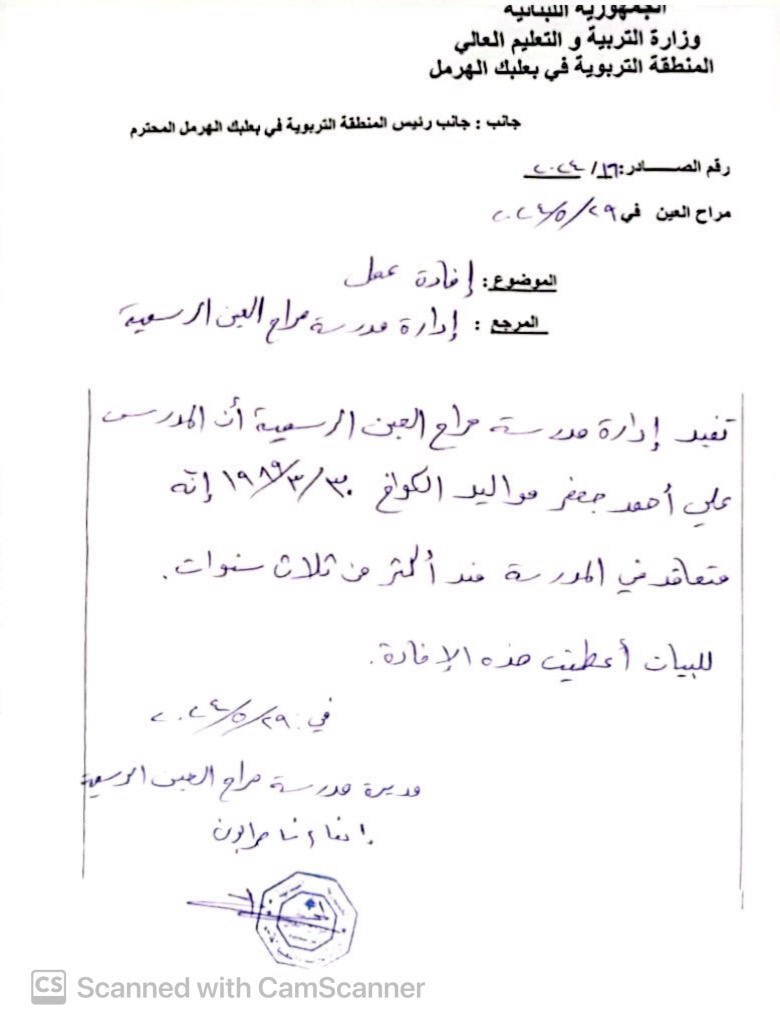 الجمهورية اللبنانية
وزارة التربية و التعليم العالي
المنطقة التربوية في بعلبك الهرمل
جانب : جانب رئيس المنطقة التربوية في بعلبك الهرمل المحترم
رقم الصـــــادر:١٦/ ٢٠٢٤
مراح العين في ٢٩/٥/٢٠٢٤
الموضوع: إفادة عمل
المرجع : إدارة مدرسة مراح العين الرسمية
تفيد إدارة مدرسة مراح العين الرسمية أن المدرس
علي أحمد جعفر مواليد الكواخ ٣٠/٣/١٩٨٩ إنّه
متعاقد في المدرسة منذ أكثر من ثلاث سنوات.
للبيان أعطيت هذه الإفادة.
في: ٢٩/٥/٢٠٢٤
مديرة مدرسة مراح العين الرسمية
CS Scanned with CamScanner